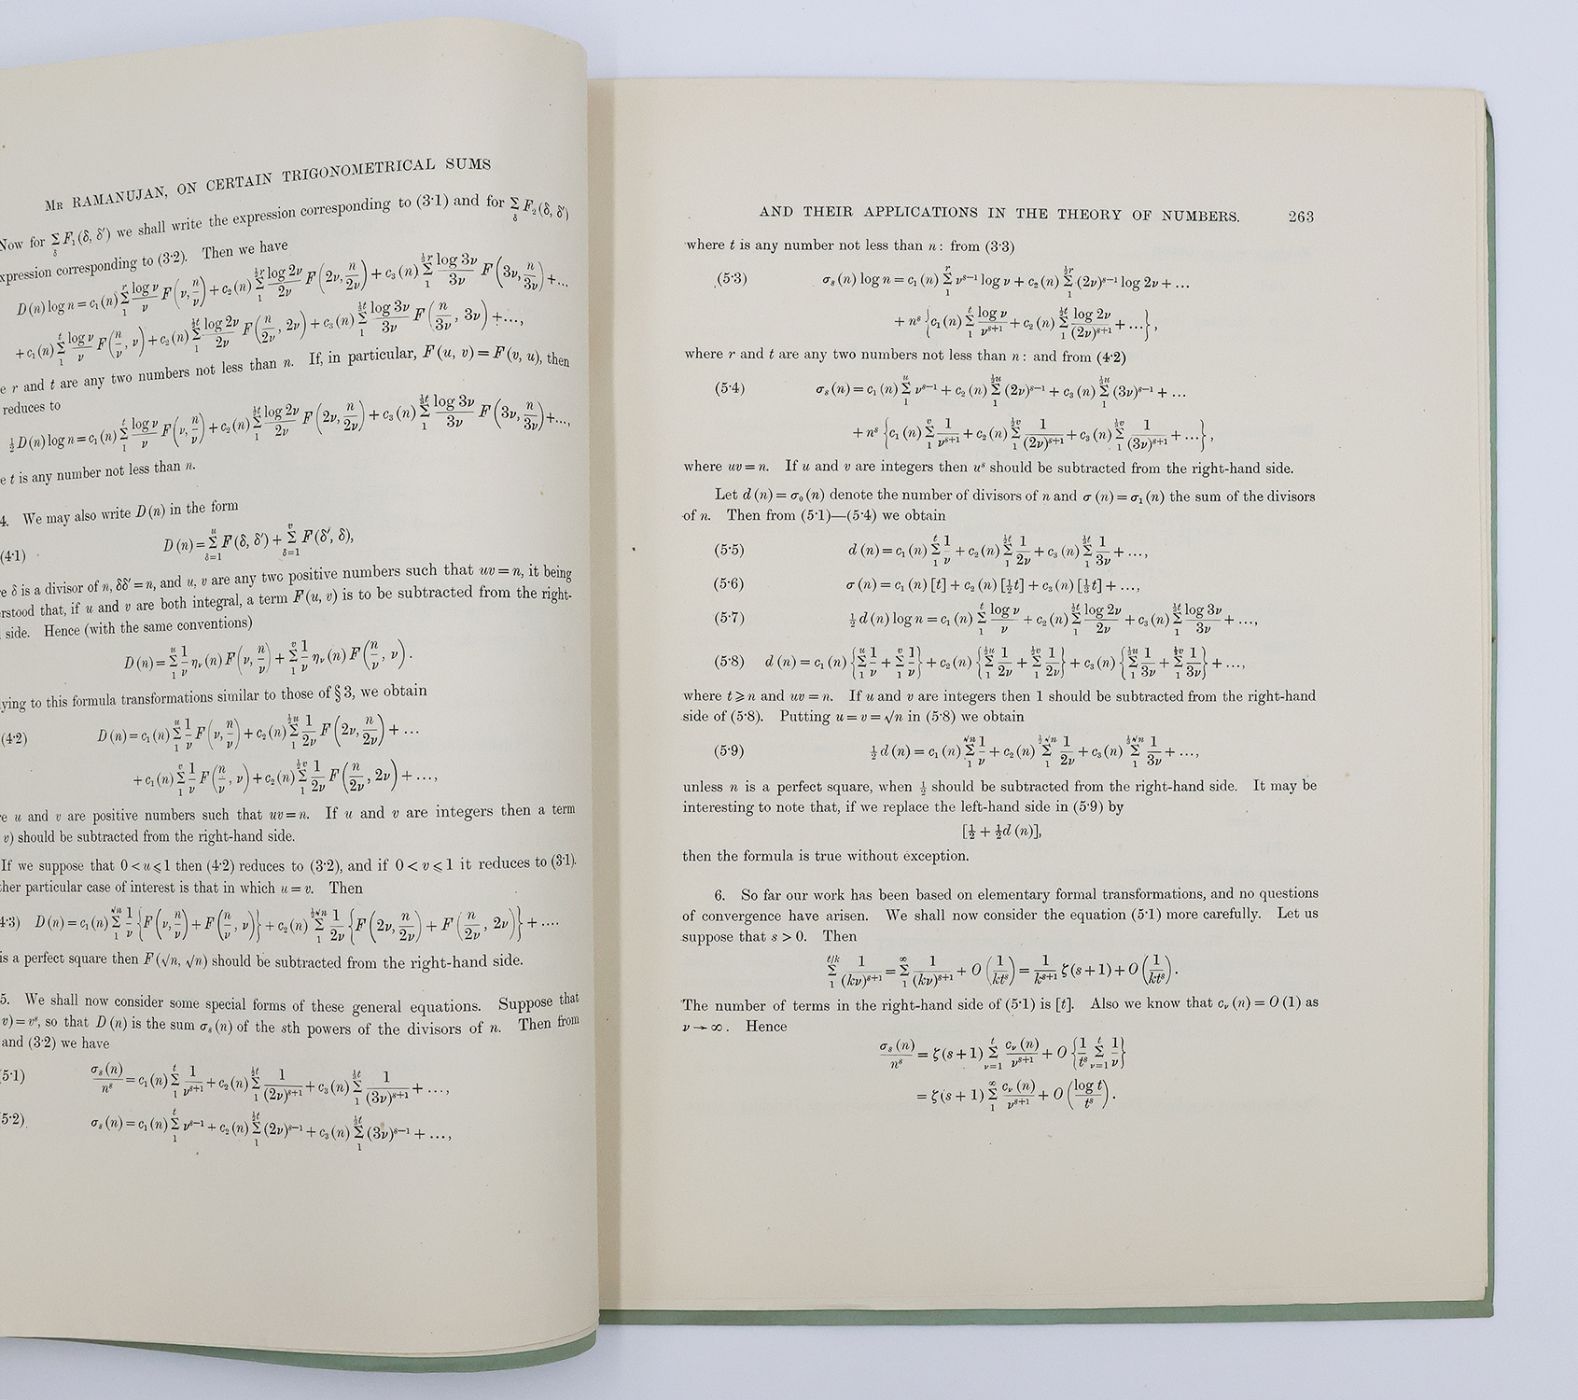 MR RAMANUJAN, ON CERTAIN TRIGONOMETRICAL SUMS
Now for Σ_δ F₁(δ, δ′) we shall write the expression corresponding to (3·1) and for Σ_δ F₂(δ, δ′)
xpression corresponding to (3·2). Then we have
D(n) log n = c₁(n) Σ_1^r (log ν)/ν F(ν, n/ν) + c₂(n) Σ_1^{½r} (log 2ν)/2ν F(2ν, n/2ν) + c₃(n) Σ_1^{⅓r} (log 3ν)/3ν F(3ν, n/3ν) + ...
+ c₁(n) Σ_1^t (log ν)/ν F(n/ν, ν) + c₂(n) Σ_1^{½t} (log 2ν)/2ν F(n/2ν, 2ν) + c₃(n) Σ_1^{⅓t} (log 3ν)/3ν F(n/3ν, 3ν) + ...,
e r and t are any two numbers not less than n. If, in particular, F(u, v) = F(v, u), then
reduces to
½D(n) log n = c₁(n) Σ_1^t (log ν)/ν F(ν, n/ν) + c₂(n) Σ_1^{½t} (log 2ν)/2ν F(2ν, n/2ν) + c₃(n) Σ_1^{⅓t} (log 3ν)/3ν F(3ν, n/3ν) + ...,
e t is any number not less than n.
4. We may also write D(n) in the form
(4·1) D(n) = Σ_{δ=1}^u F(δ, δ′) + Σ_{δ=1}^v F(δ′, δ),
e δ is a divisor of n, δδ′ = n, and u, v are any two positive numbers such that uv = n, it being
rstood that, if u and v are both integral, a term F(u, v) is to be subtracted from the right-
side. Hence (with the same conventions)
D(n) = Σ_1^u (1/ν) η_ν(n) F(ν, n/ν) + Σ_1^v (1/ν) η_ν(n) F(n/ν, ν).
ying to this formula transformations similar to those of § 3, we obtain
(4·2) D(n) = c₁(n) Σ_1^u (1/ν) F(ν, n/ν) + c₂(n) Σ_1^{½u} (1/2ν) F(2ν, n/2ν) + ...
+ c₁(n) Σ_1^v (1/ν) F(n/ν, ν) + c₂(n) Σ_1^{½v} (1/2ν) F(n/2ν, 2ν) + ...,
e u and v are positive numbers such that uv = n. If u and v are integers then a term
v) should be subtracted from the right-hand side.
If we suppose that 0 < u ⩽ 1 then (4·2) reduces to (3·2), and if 0 < v ⩽ 1 it reduces to (3·1).
ther particular case of interest is that in which u = v. Then
4·3) D(n) = c₁(n) Σ_1^{√n} (1/ν) {F(ν, n/ν) + F(n/ν, ν)} + c₂(n) Σ_1^{½√n} (1/2ν) {F(2ν, n/2ν) + F(n/2ν, 2ν)} + ....
is a perfect square then F(√n, √n) should be subtracted from the right-hand side.
5. We shall now consider some special forms of these general equations. Suppose that
v) = vˢ, so that D(n) is the sum σ_s(n) of the sth powers of the divisors of n. Then from
and (3·2) we have
5·1) σ_s(n)/nˢ = c₁(n) Σ_1^t 1/ν^{s+1} + c₂(n) Σ_1^{½t} 1/(2ν)^{s+1} + c₃(n) Σ_1^{⅓t} 1/(3ν)^{s+1} + ...,
5·2) σ_s(n) = c₁(n) Σ_1^t ν^{s−1} + c₂(n) Σ_1^{½t} (2ν)^{s−1} + c₃(n) Σ_1^{⅓t} (3ν)^{s−1} + ...,
AND THEIR APPLICATIONS IN THE THEORY OF NUMBERS. 263
where t is any number not less than n : from (3·3)
(5·3) σ_s(n) log n = c₁(n) Σ_1^r ν^{s−1} log ν + c₂(n) Σ_1^{½r} (2ν)^{s−1} log 2ν + ...
+ nˢ {c₁(n) Σ_1^t (log ν)/ν^{s+1} + c₂(n) Σ_1^{½t} (log 2ν)/(2ν)^{s+1} + ...},
where r and t are any two numbers not less than n : and from (4·2)
(5·4) σ_s(n) = c₁(n) Σ_1^u ν^{s−1} + c₂(n) Σ_1^{½u} (2ν)^{s−1} + c₃(n) Σ_1^{⅓u} (3ν)^{s−1} + ...
+ nˢ {c₁(n) Σ_1^v 1/ν^{s+1} + c₂(n) Σ_1^{½v} 1/(2ν)^{s+1} + c₃(n) Σ_1^{⅓v} 1/(3ν)^{s+1} + ...},
where uv = n. If u and v are integers then uˢ should be subtracted from the right-hand side.
Let d(n) = σ₀(n) denote the number of divisors of n and σ(n) = σ₁(n) the sum of the divisors
of n. Then from (5·1)—(5·4) we obtain
(5·5) d(n) = c₁(n) Σ_1^t 1/ν + c₂(n) Σ_1^{½t} 1/2ν + c₃(n) Σ_1^{⅓t} 1/3ν + ...,
(5·6) σ(n) = c₁(n) [t] + c₂(n) [½t] + c₃(n) [⅓t] + ...,
(5·7) ½d(n) log n = c₁(n) Σ_1^t (log ν)/ν + c₂(n) Σ_1^{½t} (log 2ν)/2ν + c₃(n) Σ_1^{⅓t} (log 3ν)/3ν + ...,
(5·8) d(n) = c₁(n) {Σ_1^u 1/ν + Σ_1^v 1/ν} + c₂(n) {Σ_1^{½u} 1/2ν + Σ_1^{½v} 1/2ν} + c₃(n) {Σ_1^{⅓u} 1/3ν + Σ_1^{⅓v} 1/3ν} + ...,
where t ⩾ n and uv = n. If u and v are integers then 1 should be subtracted from the right-hand
side of (5·8). Putting u = v = √n in (5·8) we obtain
(5·9) ½d(n) = c₁(n) Σ_1^{√n} 1/ν + c₂(n) Σ_1^{½√n} 1/2ν + c₃(n) Σ_1^{⅓√n} 1/3ν + ...,
unless n is a perfect square, when ½ should be subtracted from the right-hand side. It may be
interesting to note that, if we replace the left-hand side in (5·9) by
[½ + ½d(n)],
then the formula is true without exception.
6. So far our work has been based on elementary formal transformations, and no questions
of convergence have arisen. We shall now consider the equation (5·1) more carefully. Let us
suppose that s > 0. Then
Σ_1^{t/k} 1/(kν)^{s+1} = Σ_1^∞ 1/(kν)^{s+1} + O(1/ktˢ) = 1/k^{s+1} ζ(s+1) + O(1/ktˢ).
The number of terms in the right-hand side of (5·1) is [t]. Also we know that c_ν(n) = O(1) as
ν → ∞. Hence
σ_s(n)/nˢ = ζ(s+1) Σ_{ν=1}^t c_ν(n)/ν^{s+1} + O{1/tˢ Σ_{ν=1}^t 1/ν}
= ζ(s+1) Σ_1^∞ c_ν(n)/ν^{s+1} + O(log t/tˢ).